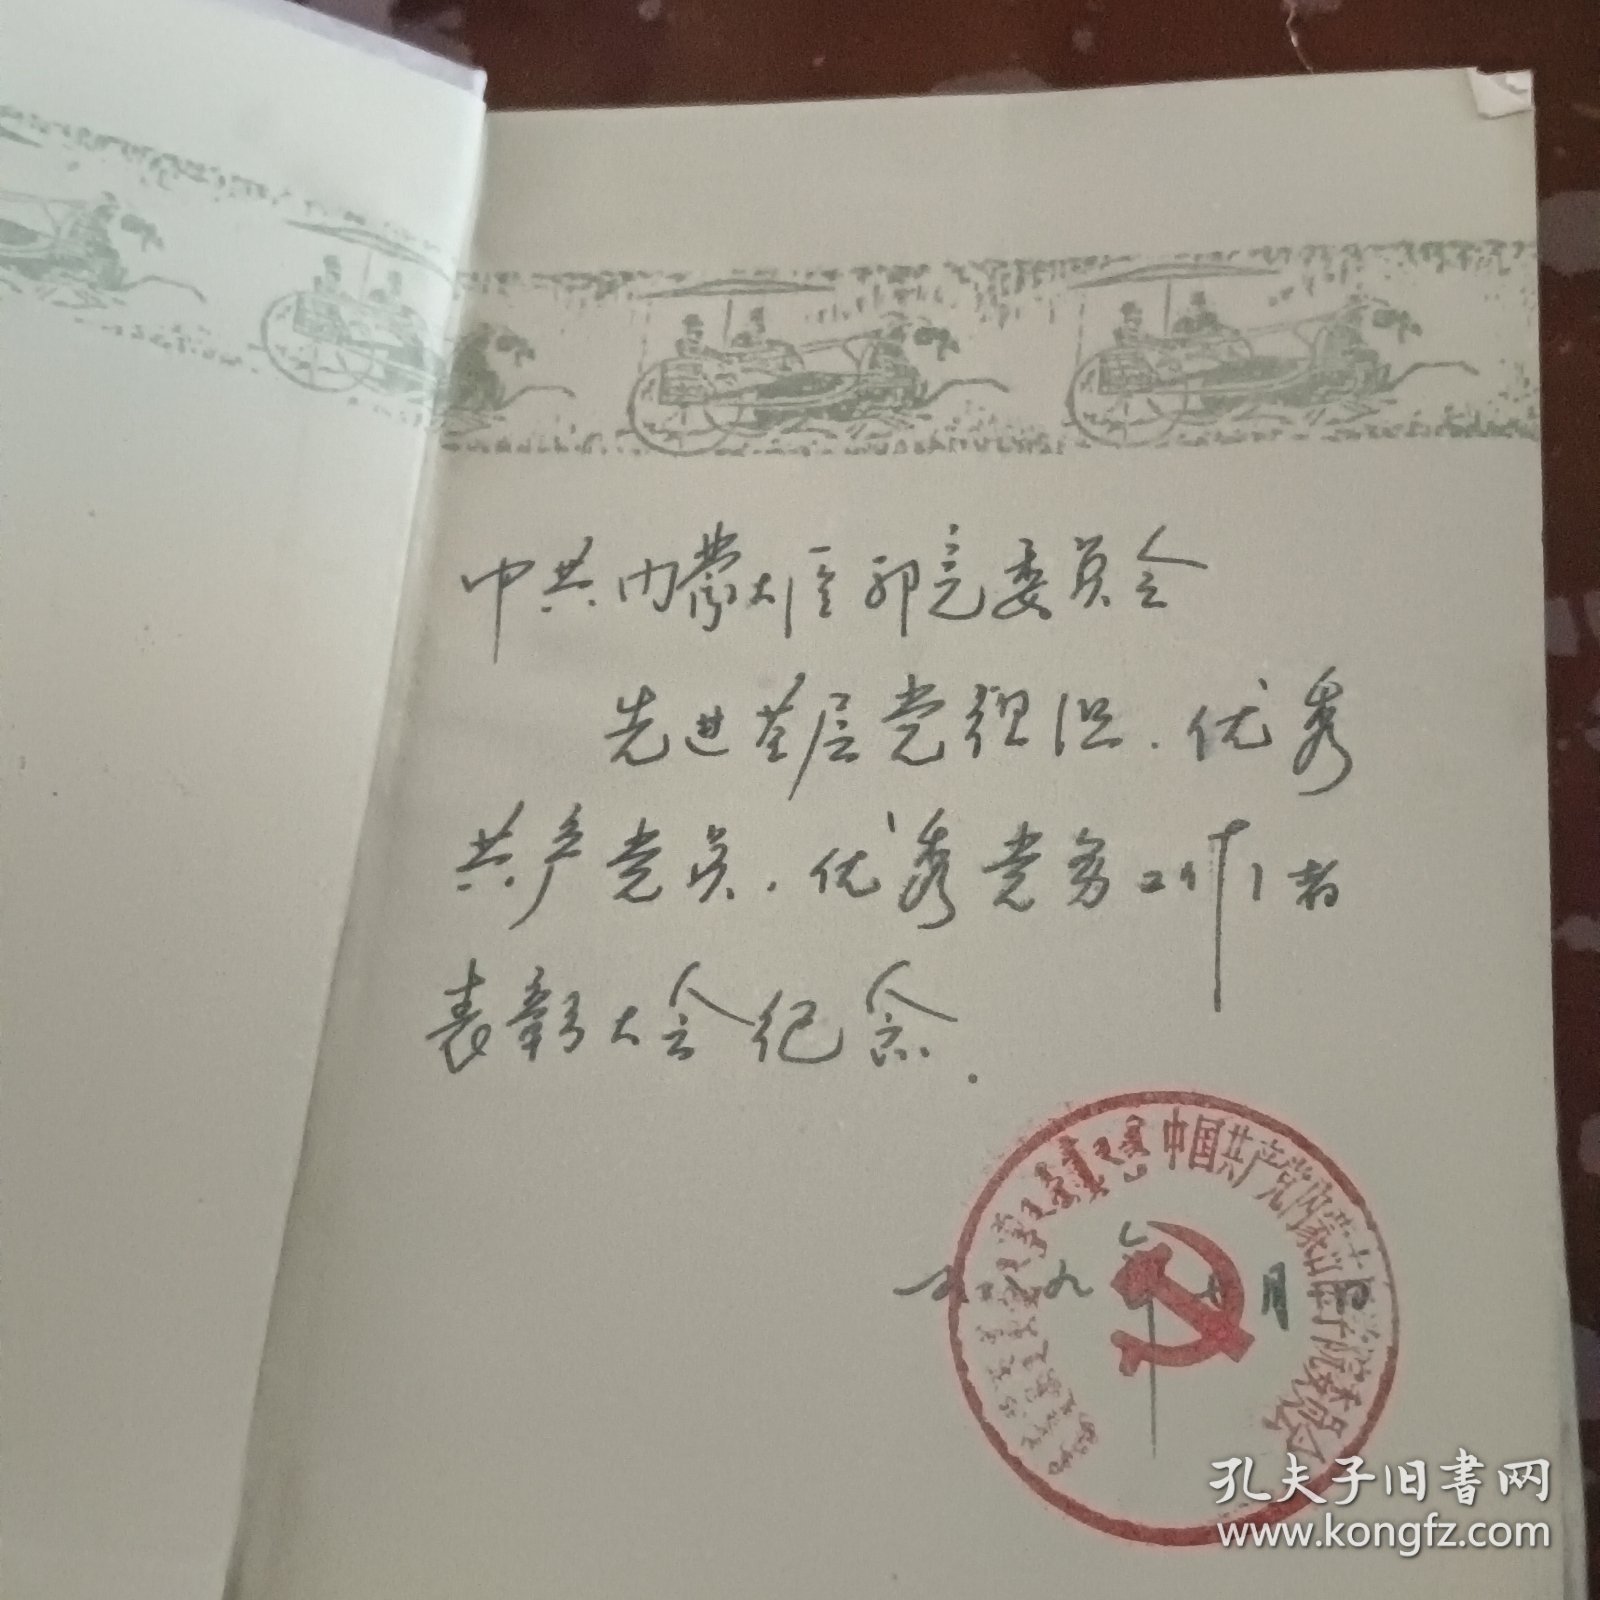 中共内蒙大
委员会
先进基层党组织.优秀
共产党员.优秀党务工作者
表彰大会纪念.
中国共产党内蒙古
委员会
一九八九年七月
孔夫子旧书网
www.kongfz.com